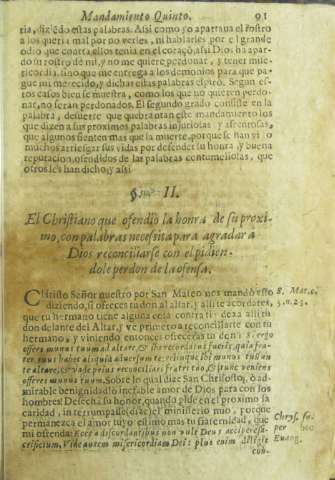 Mandamiento Quinto. 91
ria, diziẽdo estas palabras. Assi como yo apartaua el rostro
a los queria mal por no verles, ni hablarles por el grande
odio que contra ellos tenia en el coraçõ, assi Dios ha apar-
do su rostro de mi, y no me quiere perdonar, y tener mise-
ricordia, sino que me entrega a los demonios para que pa-
gue mi merecido, y dichas estas palabras espiró. Segun es-
tos casos biẽ se muestra, como los que no quieren perdo-
nar, no seran perdonados. El segundo grado consiste en la
palabra, desuerte que quebrantan este mandamiento los
que dizen a sus proximos palabras injuriosas y afrentosas,
que algunos sienten mas que la muerte, porque se han visto
muchos arriesgar sus vidas por defender su honra, y buena
reputacion, ofendidos de las palabras contumeliosas, que
otros les han dicho; y assi
§. II.
El Christiano que ofendio la honra de su proxi-
mo, con palabras necessita para agradar a
Dios reconciliarse con el pidien-
dole perdon de la ofensa.
CHristo Señor nuestro por San Mateo nos mandó esto
diziendo, si ofreces tu don al altar, y alli te acordares,
que tu hermano tiene alguna cosa contra ti dexa alli tu
don delante del Altar, y ve primero a reconciliarte con tu
hermano, y viniendo entonces ofreceras tu don
offers munus tuum ad altare, & ibi recordatus fueris, quia fra-
ter tuus habet aliquid aduersum te: relinque ibi munus tuum
te altare, & vade prius reconciliari fratri tuo, & tunc veniens
offeres munus tuum. Sobre lo qual dize San Chrisosto, ò ad-
mirable benignidad! ò inefable amor de Dios para con los
hombres! Desecha su honor, quando pide en el proximo la
caridad, interrumpasse (dize) el ministerio mio, porque
permanezca el amor tuyo: estimo mas tu fraternidad, que
mi ofrenda: Ecce a discordantibus non vult Deus accipere sa-
crificium, Vide autem misericordiam Dei: plus enim diligit
con-
S. Mat. c.
5. n. 23.
S. ergo
Chrys. su-
per hoc
Euang.